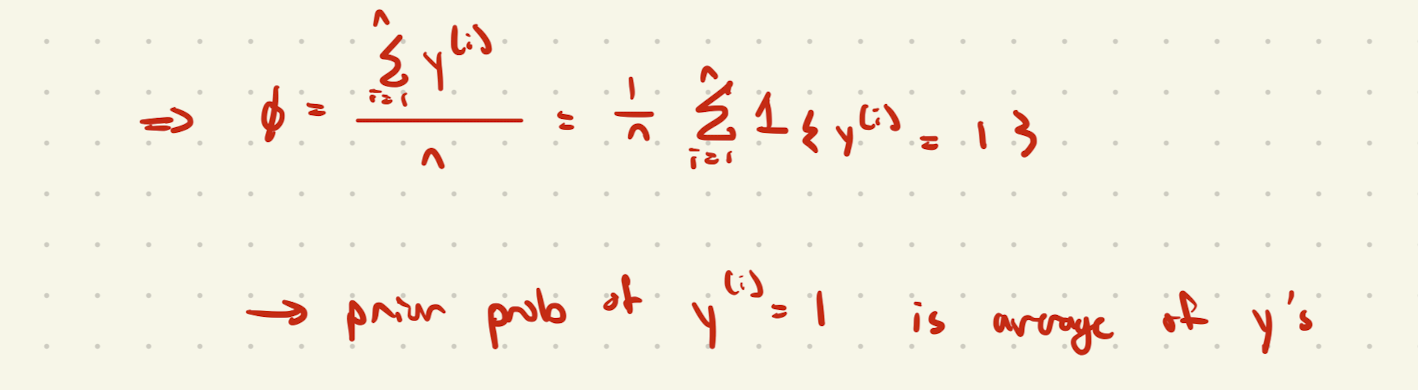 ⇒ ϕ = (∑_{i=1}^{n} y^{(i)}) / n = 1/n ∑_{i=1}^{n} 1{y^{(i)} = 1}
→ prior prob of y^{(i)} = 1 is average of y's